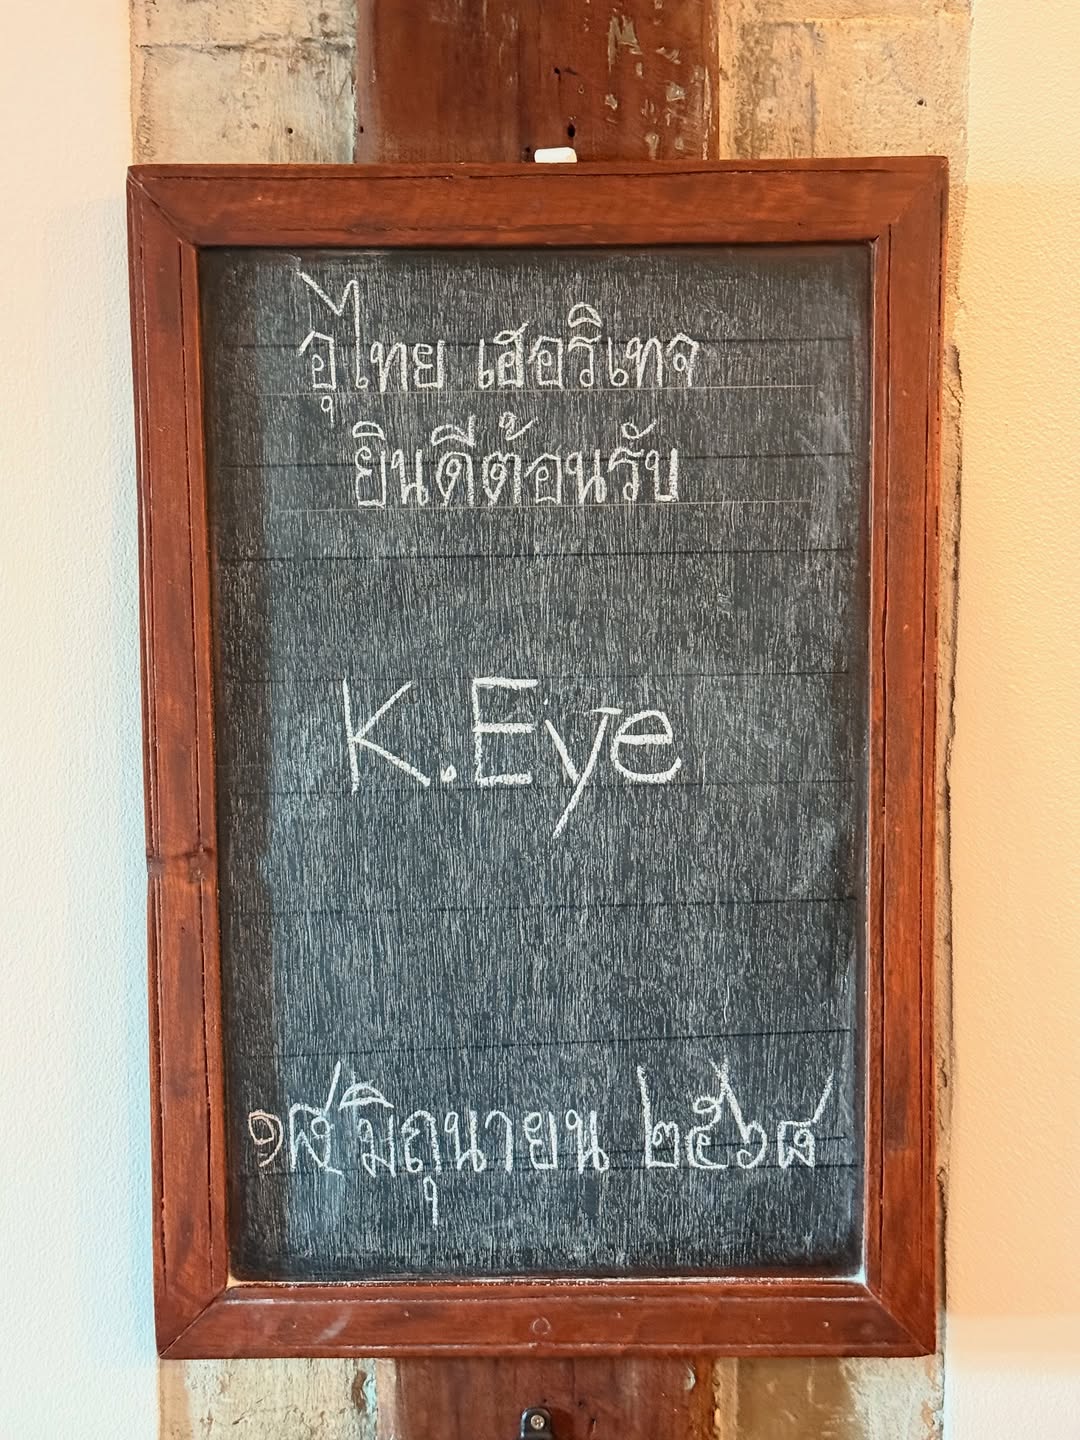 อุไทย เฮอริเทจ
ยินดีต้อนรับ
K.Eye
๑๘ มิถุนายน ๒๕๖๘